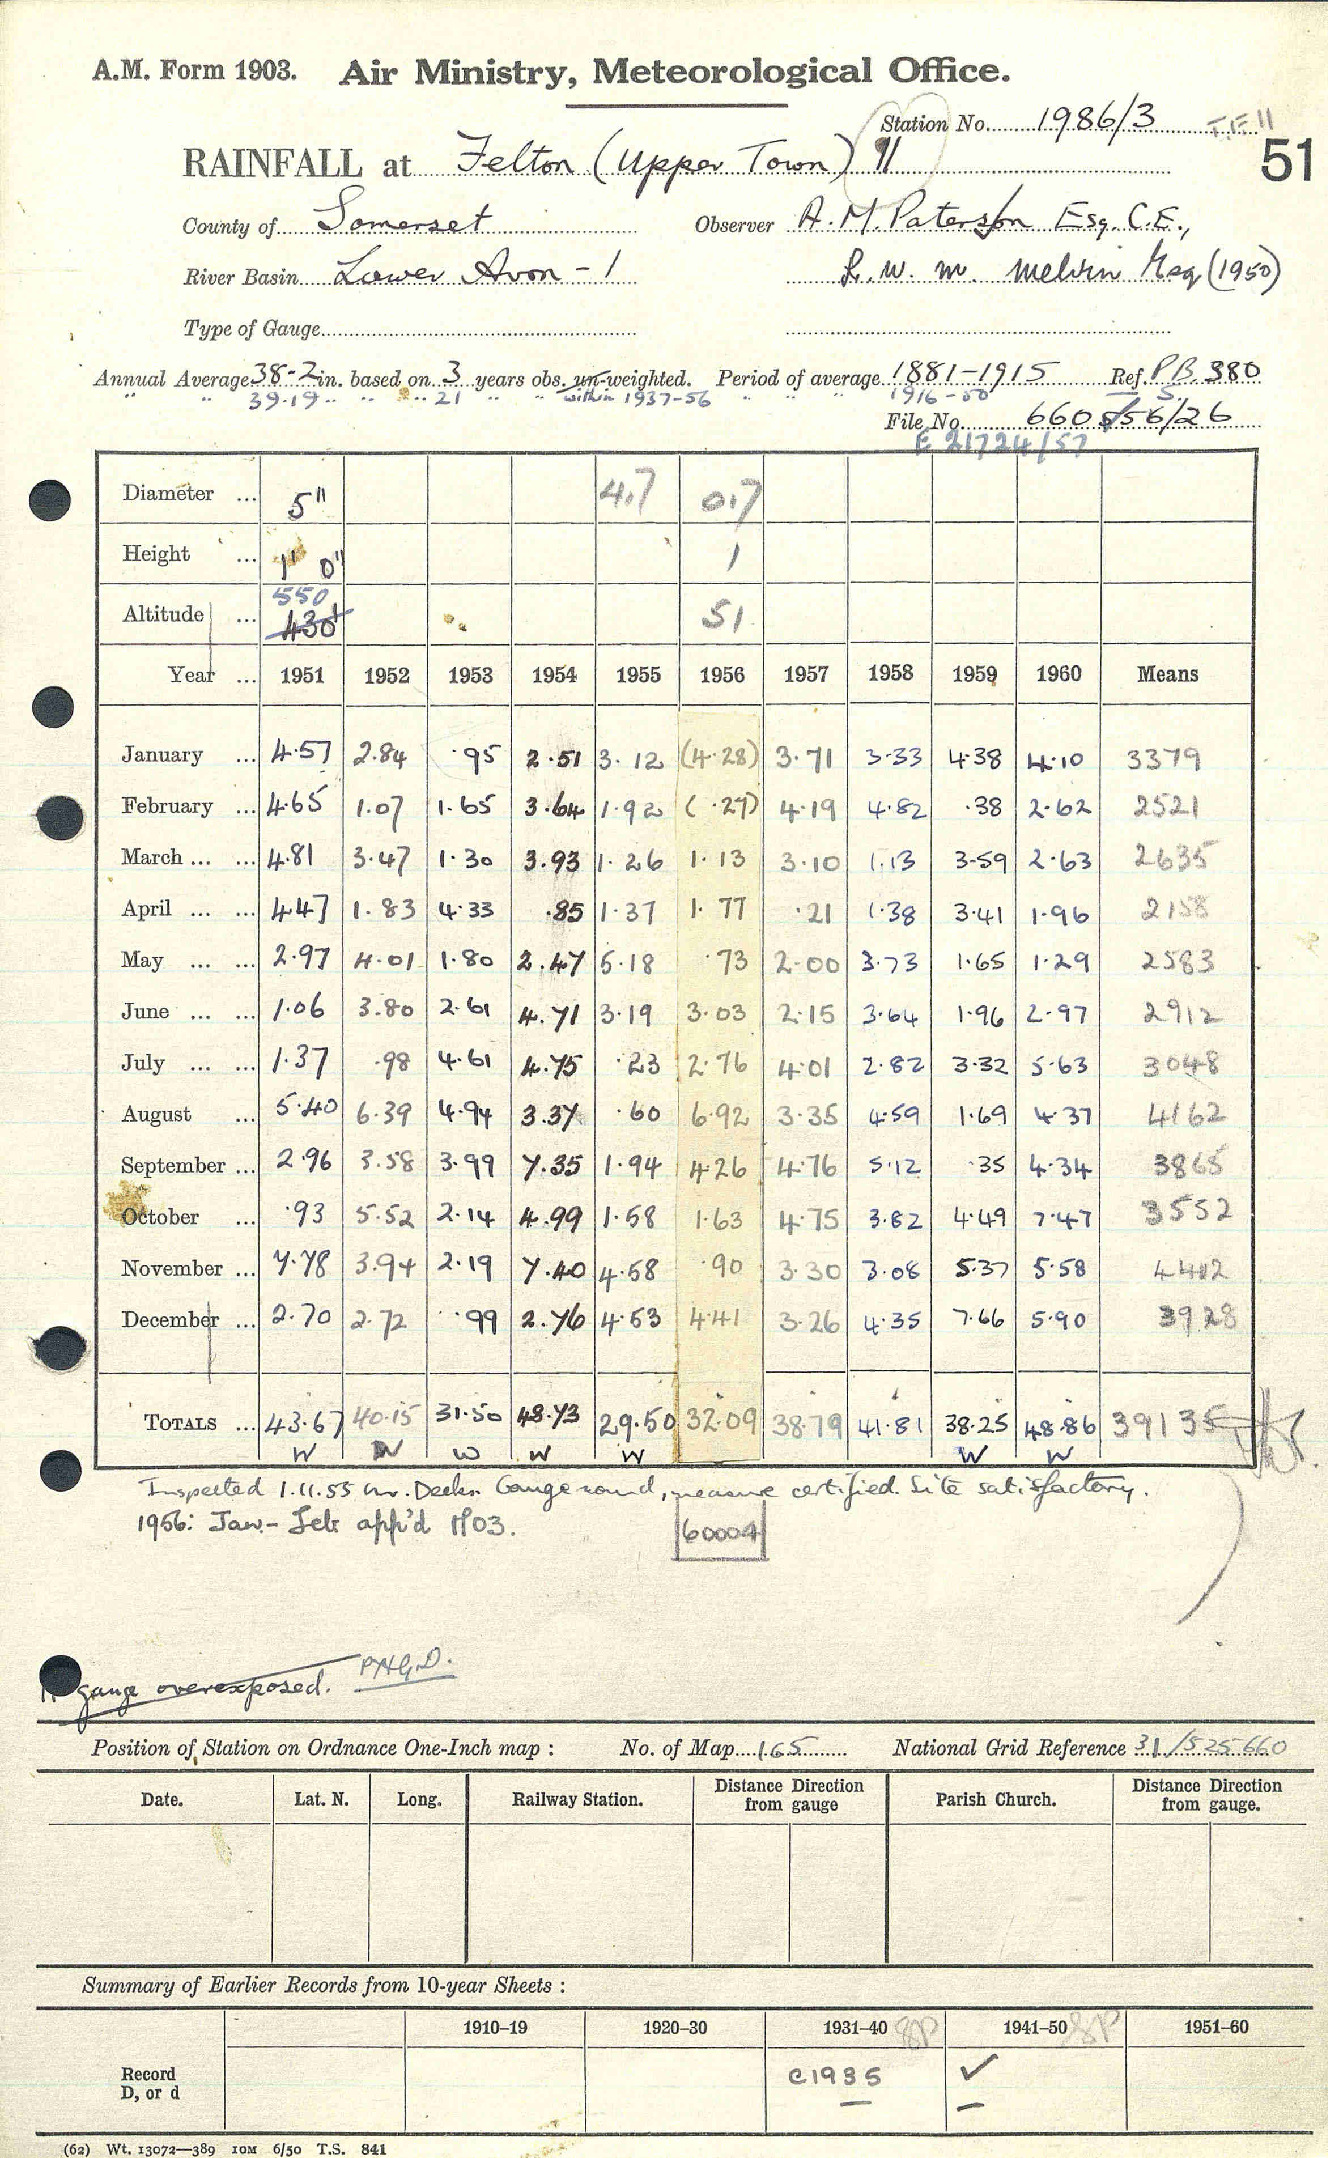 A.M. Form 1903. Air Ministry, Meteorological Office.
Station No. 1986/3 T.F 11
51
RAINFALL at Felton (Upper Town) 11
County of Somerset Observer A. M. Paterson Esq. C.E.,
River Basin Lower Avon - 1 L. W. M. Melvin Esq (1950)
Type of Gauge
Annual Average 38-2 in. based on 3 years obs. un-weighted. Period of average 1881-1915 Ref. P.B. 380
" " 39.19 " " " 21 " " within 1937-56 " " " 1916-50 S.
File No. 6605/56/26
E 21724/57
Diameter ... 5" 4.7 0.7
Height ... 1' 0" 1
550
Altitude ... 430' 51
Year ... 1951 1952 1953 1954 1955 1956 1957 1958 1959 1960 Means
January ... 4.57 2.84 .95 2.51 3.12 (4.28) 3.71 3.33 4.38 4.10 3379
February ... 4.65 1.07 1.65 3.64 1.92 (.27) 4.19 4.82 .38 2.62 2521
March ... ... 4.81 3.47 1.30 3.93 1.26 1.13 3.10 1.13 3.59 2.63 2635
April ... ... 4.47 1.83 4.33 .85 1.37 1.77 .21 1.38 3.41 1.96 2158
May ... ... 2.97 4.01 1.80 2.47 5.18 .73 2.00 3.73 1.65 1.29 2583
June ... ... 1.06 3.80 2.61 4.71 3.19 3.03 2.15 3.64 1.96 2.97 2912
July ... ... 1.37 .98 4.61 4.75 .23 2.76 4.01 2.82 3.32 5.63 3048
August ... 5.40 6.39 4.94 3.37 .60 6.92 3.35 4.59 1.69 4.37 4162
September ... 2.96 3.58 3.99 7.35 1.94 4.26 4.76 5.12 .35 4.34 3865
October ... .93 5.52 2.14 4.99 1.58 1.63 4.75 3.82 4.49 7.47 3552
November ... 7.78 3.94 2.19 7.40 4.58 .90 3.30 3.08 5.37 5.58 4412
December ... 2.70 2.72 .99 2.76 4.53 4.41 3.26 4.35 7.66 5.90 3928
TOTALS ... 43.67 40.15 31.50 48.73 29.50 32.09 38.79 41.81 38.25 48.86 39135
W W W W W W W
Inspected 1.11.55 Mr. Gauge sound, measure certified. Site satisfactory.
1956: Jan - Feb app'd 1903.
60004
gauge overexposed. P.H.G.D.
Position of Station on Ordnance One-Inch map : No. of Map 165 National Grid Reference 31/525660
Date. Lat. N. Long. Railway Station. Distance Direction from gauge Parish Church. Distance Direction from gauge.
Summary of Earlier Records from 10-year Sheets :
1910–19 1920–30 1931–40 SP 1941–50 SP 1951–60
Record C1935 ✓
D, or d — —
(62) Wt. 13072—389 10M 6/50 T.S. 841